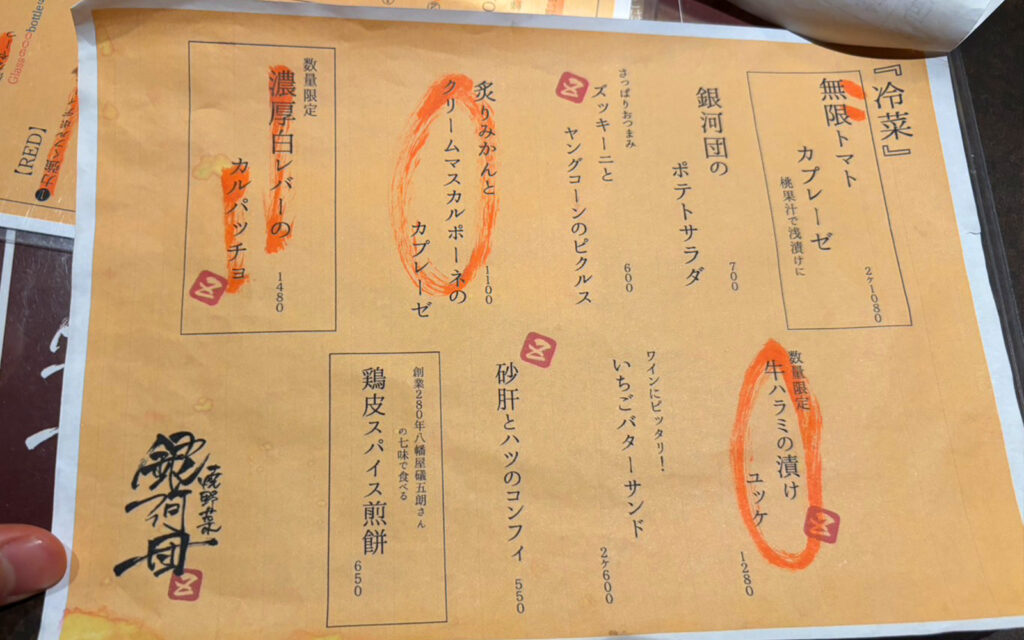 『冷菜』
無限トマト
カプレーゼ
桃果汁で浅漬けに
2ヶ1080
銀河団の
ポテトサラダ
700
さっぱりおつまみ
ズッキーニと
ヤングコーンのピクルス
600
炙りみかんと
クリームマスカルポーネの
カプレーゼ
1100
数量限定
濃厚白レバーの
カルパッチョ
1480
数量限定
牛ハラミの漬け
ユッケ
1280
ワインにピッタリ!
いちごバターサンド
2ヶ600
砂肝とハツのコンフィ
550
創業280年八幡屋礒五朗さん
の七味で食べる
鶏皮スパイス煎餅
650
銀河団
Glass
bottle
【RED】